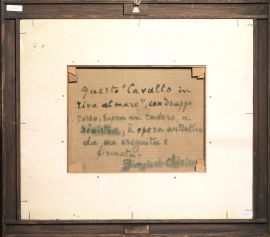 Questo "Cavallo in
riva al mare", con drappo
rosso, sopra un rudero, a
sinistra, è opera autentica
da me eseguita e
firmata.
Giorgio de Chirico